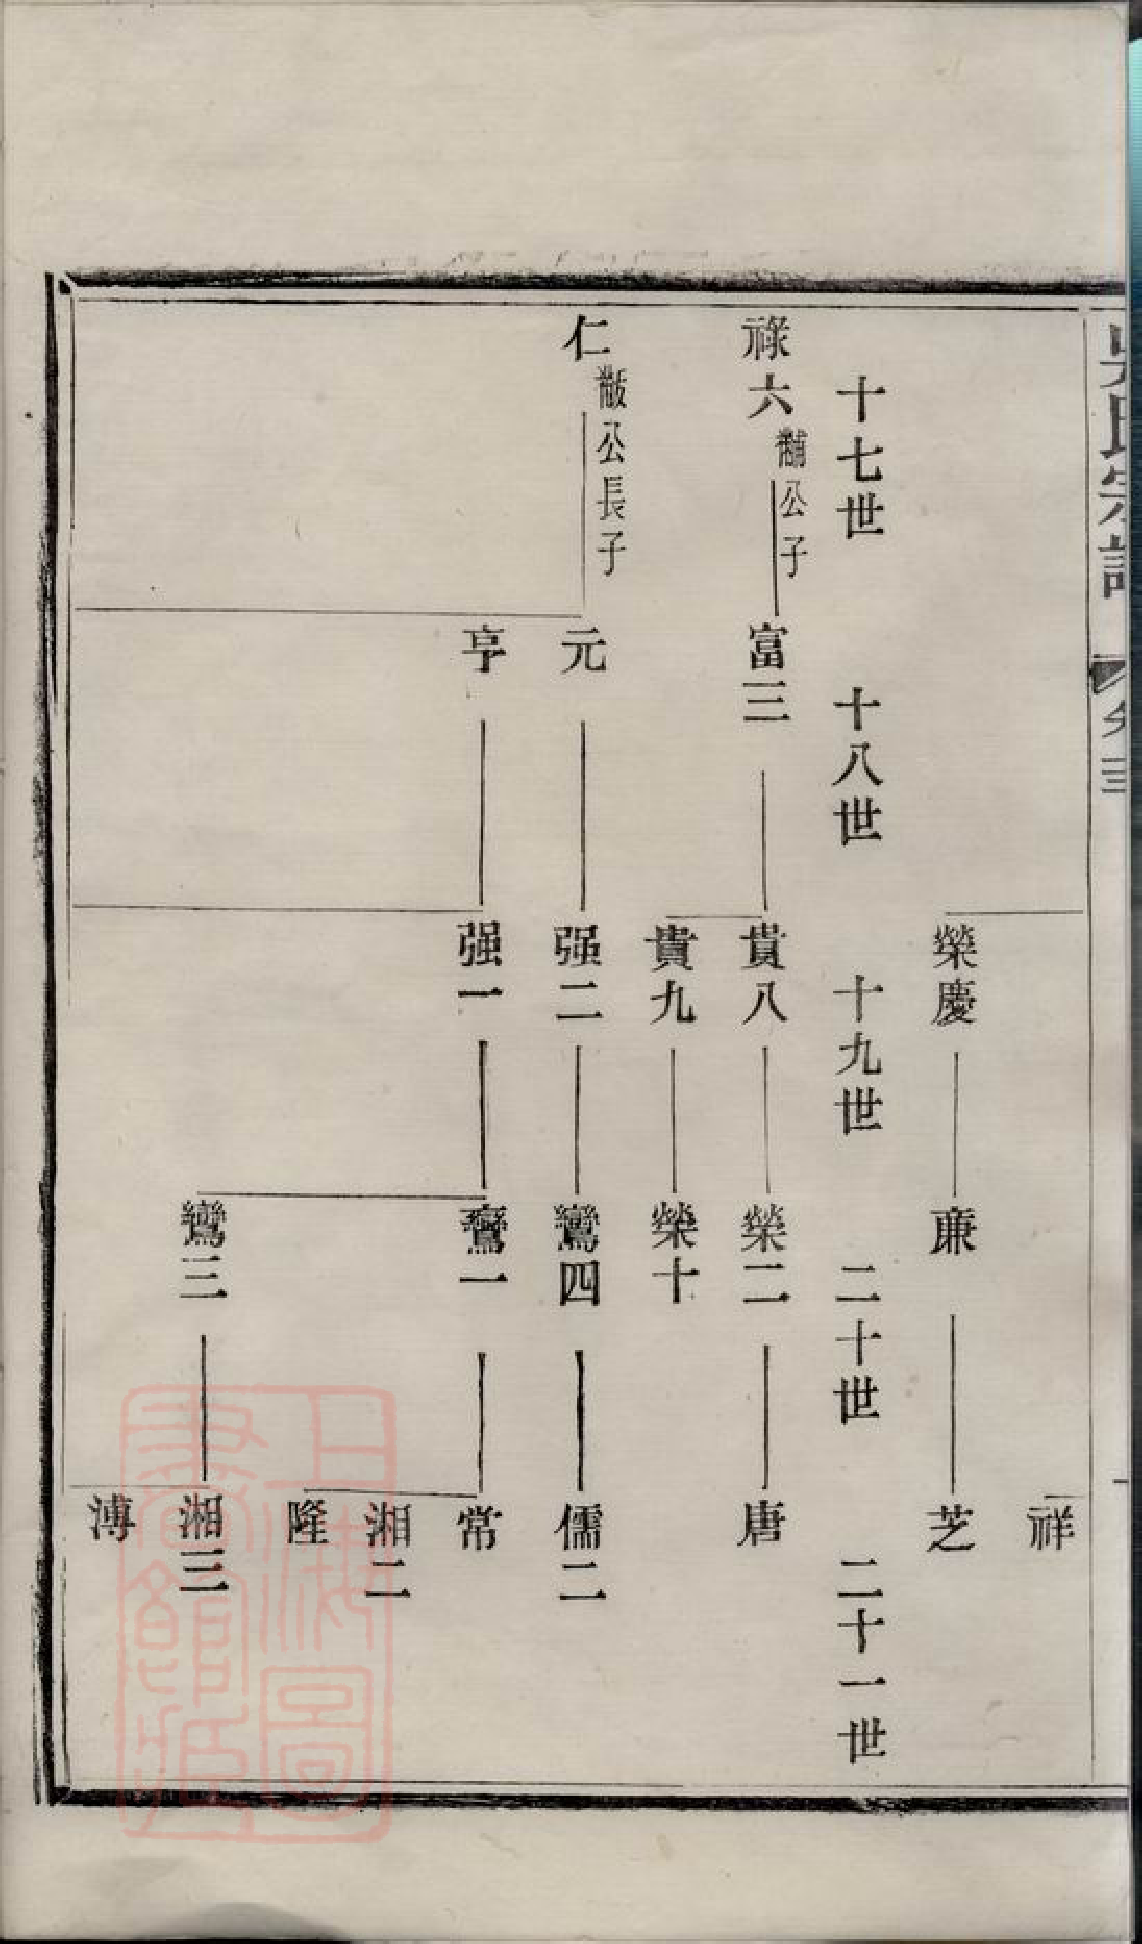 吳氏宗譜 卷三
祥
榮慶 廉 芝
十七世 十八世 十九世 二十世 二十一世
祿六 黼公子 富三 貴八 榮二 唐
貴九 榮十
仁 黻公長子 元 强二 鸞四 儒二
亨 强一 鸞一 常
湘二
隆
鸞三 湘三
溥
上海圖書館藏